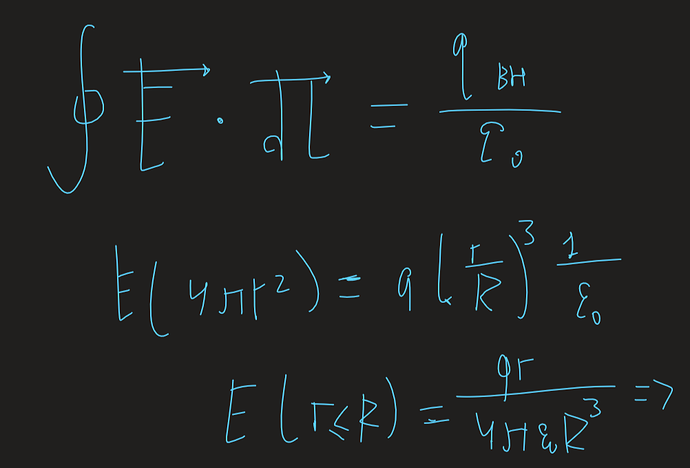 ∮ E⃗ · dП⃗ = qвн / ε₀
E(4πr²) = q(r/R)³ 1/ε₀
E(r≤R) = qr / 4πε₀R³ =>